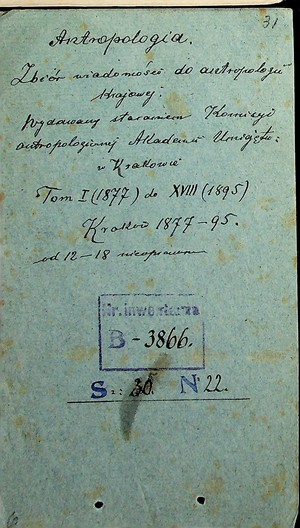 31
Antropologia.
Zbiór wiadomości do antropologii
krajowej.
Wydawany staraniem Komisyi
antropologicznej Akademii Umiejętn:
w Krakowie
Tom I (1877) do XVIII (1895)
Kraków 1877–95.
od 12–18 nieoprawne
Nr. inwentarza
B - 3866.
S.: 35. N 22.